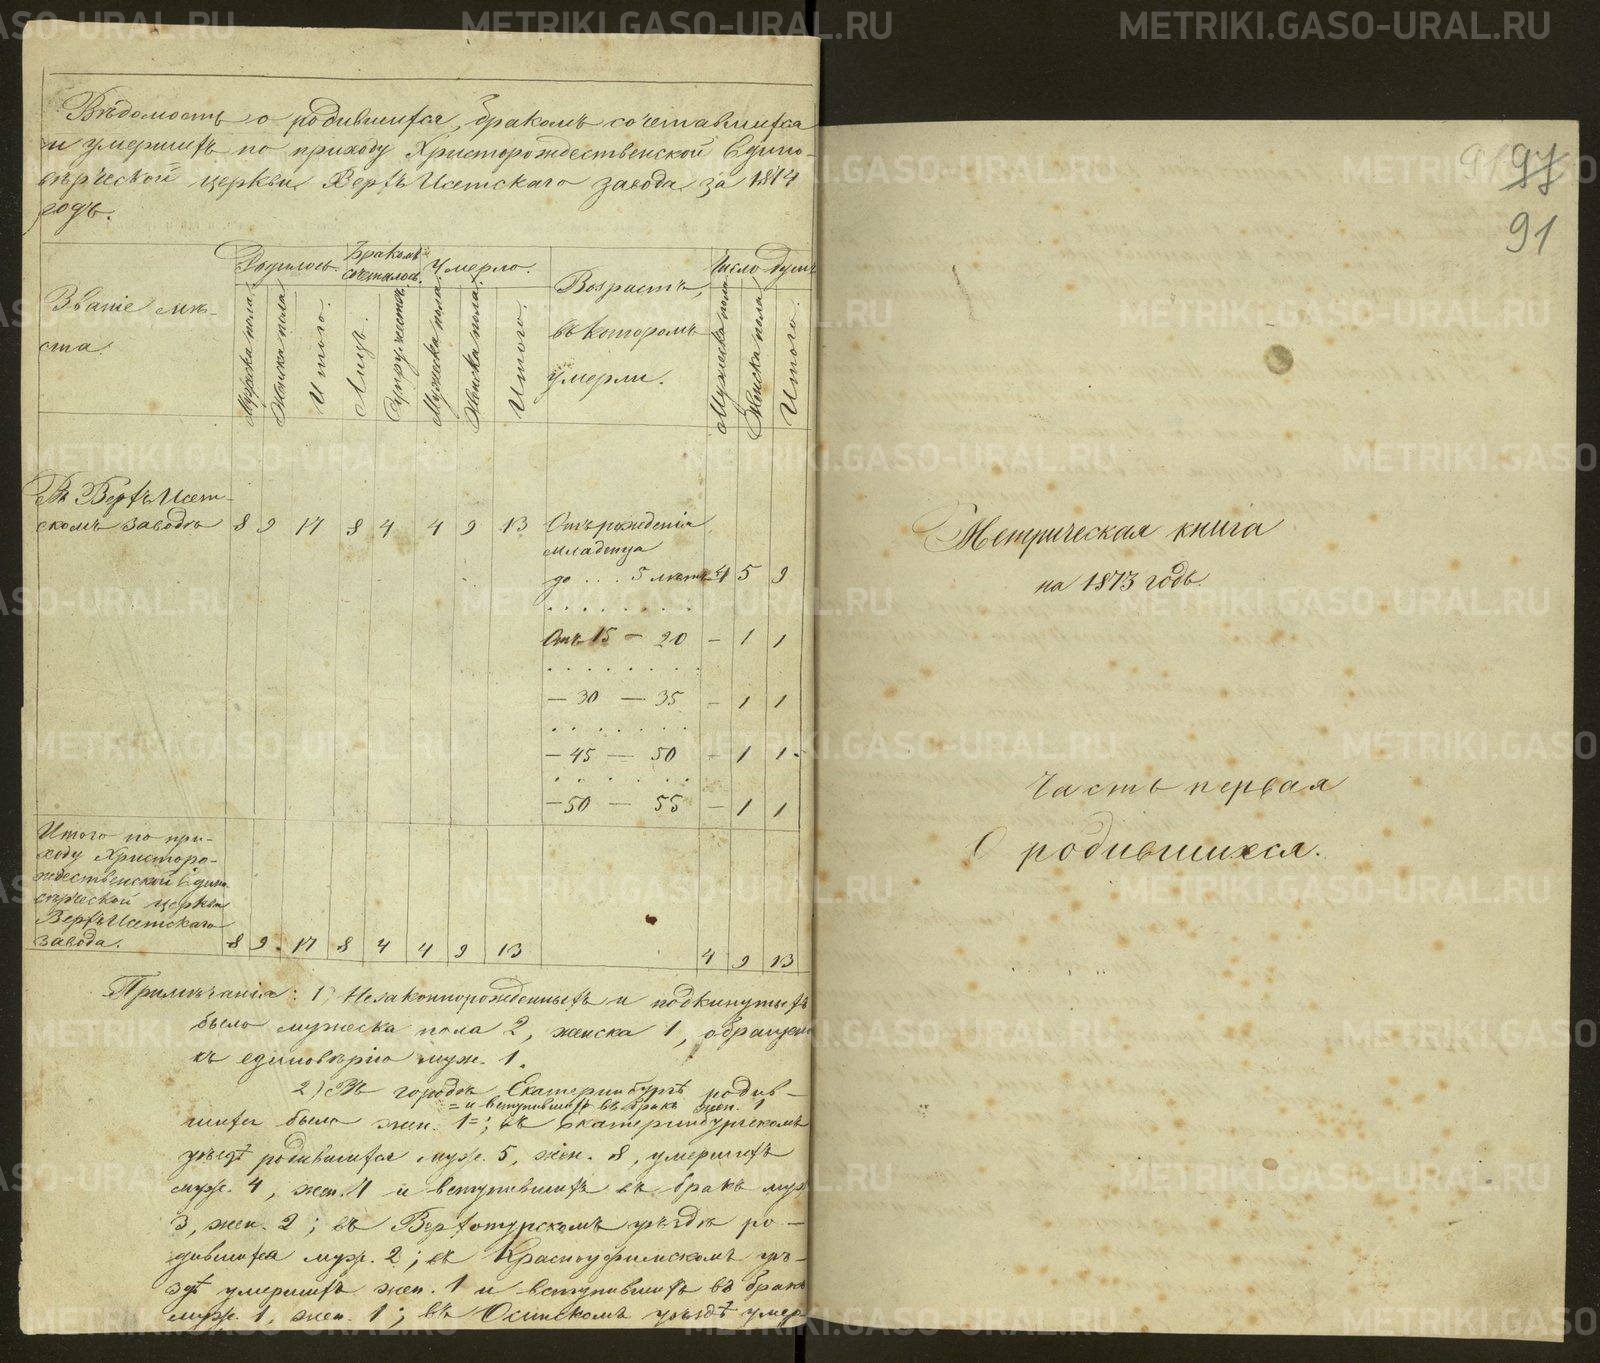 Вѣдомость о родившихся, бракомъ сочетавшихся
и умершихъ по приходу Христорождественской Едино-
вѣрческой церкви Верхъ Исетскаго завода за 1874
годъ.
Званіе мѣ-
ста.
Родилось
Бракомъ
сочеталось.
Умерло.
Возрастъ,
въ которомъ
умерли.
Число душъ
Мужеска пола.
Женска пола
Итого.
Лицъ.
Супружествъ
Мужеска пола
Женска пола.
Итого.
Мужеска пола
Женска пола
Итого.
Въ Верхъ Исет-
скомъ заводѣ 8 9 17 8 4 4 9 13 Отъ рожденія
младенца
до . . . 5 лѣтъ 4 5 9
Отъ 15 — 20 — 1 1
— 30 — 35 — 1 1
— 45 — 50 — 1 1
— 50 — 55 — 1 1
Итого по при-
ходу Христоро-
ждественской Едино
вѣрческой церкви
Верхъ Исетскаго
завода. 8 9 17 8 4 4 9 13 4 9 13
Примѣчанія: 1) Незаконнорожденныхъ и подкинутыхъ
было мужеска пола 2, женска 1, обращено
къ единовѣрію муж. 1.
2) Въ городѣ Екатеринбургѣ родив-
= и вступившихъ въ бракъ жен. 1
шихся было жен. 1=; въ Екатеринбургскомъ
уѣздѣ родившихся муж. 5, жен. 8, умершихъ
муж. 4, жен. 1 и вступившихъ въ бракъ муж
3, жен. 2; въ Верхотурскомъ уѣздѣ ро-
дившихся муж. 2; въ Красноуфимскомъ уѣ-
здѣ умершихъ жен. 1 и вступившихъ въ бракъ
муж. 1, жен. 1; въ Осинскомъ уѣздѣ умер
97
91
Метрическая книга
на 1873 годъ.
Часть первая
О родившихся.
METRIKI.GASO-URAL.RU